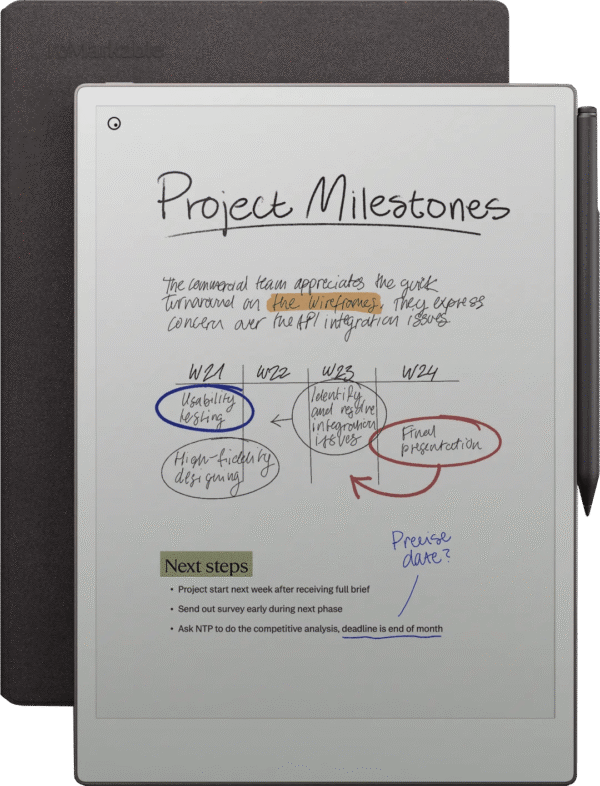 reMarkable
Project Milestones
The commercial team appreciates the quick
turnaround on the wireframes. They express
concern over the API integration issues
W21 W22 W23 W24
Usability
testing
Identify
and resolve
integration
issues
Final
presentation
High-fidelity
designing
Precise
date?
Next steps
• Project start next week after receiving full brief
• Send out survey early during next phase
• Ask NTP to do the competitive analysis, deadline is end of month